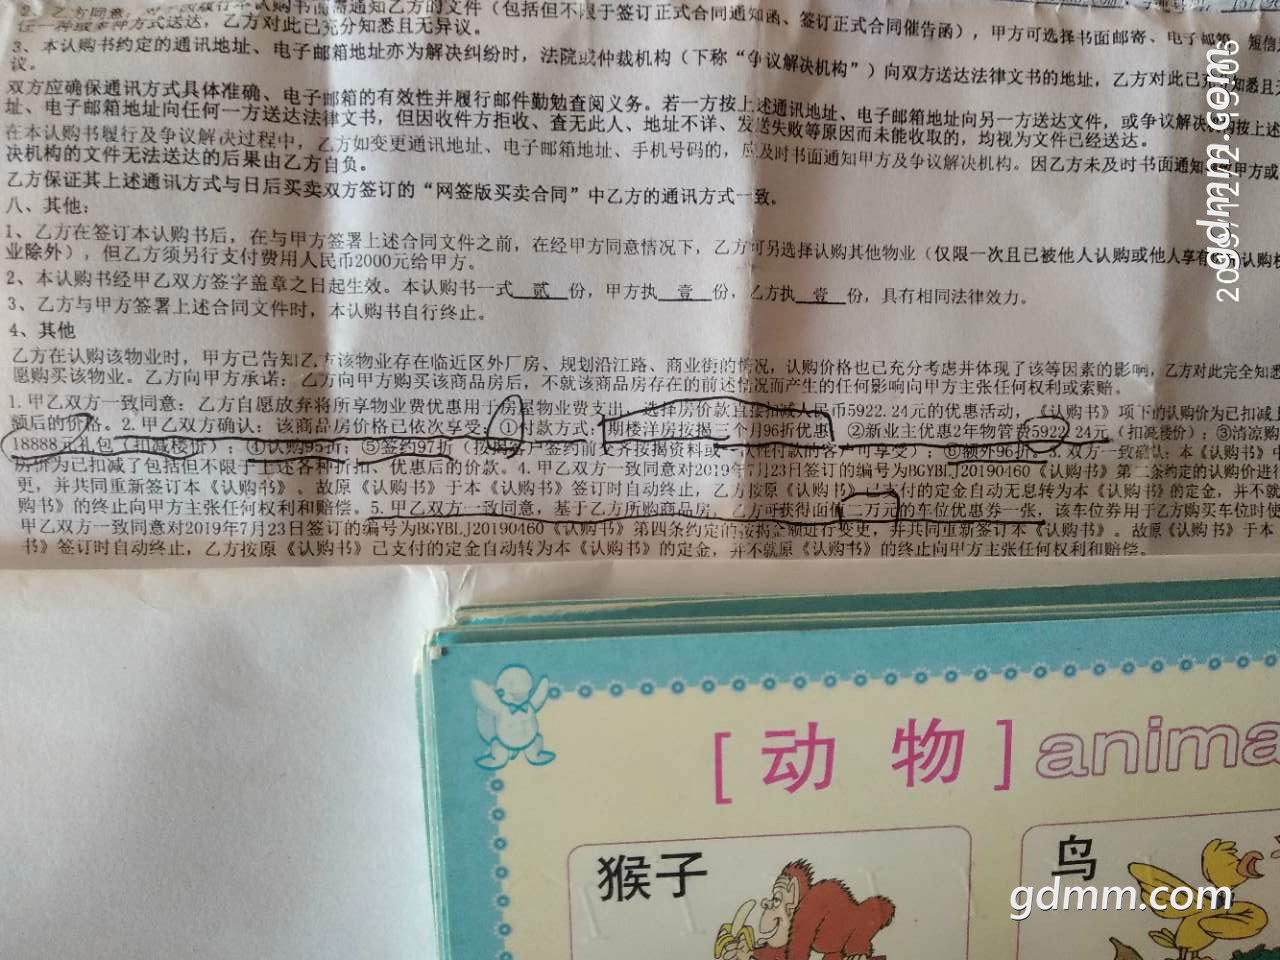 2、乙方同意，
的文件（包括但不限于签订正式合同通知函、签订正式合同催告函），甲方可选择书面邮寄、电子邮箱、短信
任一种或多种方式送达，乙方对此已充分知悉且无异议。
3、本认购书约定的通讯地址、电子邮箱地址亦为解决纠纷时，法院或仲裁机构（下称“争议解决机构”）向双方送达法律文书的地址，乙方对此已充分知悉且无
议。
双方应确保通讯方式具体准确、电子邮箱的有效性并履行邮件勤勉查阅义务。若一方按上述通讯地址、电子邮箱地址向另一方送达文件，或争议解决机构按上述
址、电子邮箱地址向任何一方送达法律文书，但因收件方拒收、查无此人、地址不详、发送失败等原因而未能收取的，均视为文件已经送达。
在本认购书履行及争议解决过程中，乙方如变更通讯地址、电子邮箱地址、手机号码的，应及时书面通知甲方及争议解决机构。因乙方未及时书面通知甲方或
决机构的文件无法送达的后果由乙方自负。
乙方保证其上述通讯方式与日后买卖双方签订的“网签版买卖合同”中乙方的通讯方式一致。
八、其他：
1、乙方在签订本认购书后，在与甲方签署上述合同文件之前，在经甲方同意情况下，乙方可另选择认购其他物业（仅限一次且已被他人认购或他人享有
认购
业除外），但乙方须另行支付费用人民币2000元给甲方。
2、本认购书经甲乙双方签字盖章之日起生效。本认购书一式 贰 份，甲方执 壹 份，乙方执 壹 份，具有相同法律效力。
3、乙方与甲方签署上述合同文件时，本认购书自行终止。
4、其他
乙方在认购该物业时，甲方已告知乙方该物业存在临近区外厂房、规划沿江路、商业街的情况，认购价格也已充分考虑并体现了该等因素的影响，乙方对此完全知悉
愿购买该物业。乙方向甲方承诺：乙方向甲方购买该商品房后，不就该商品房存在的前述情况而产生的任何影响向甲方主张任何权利或索赔。
1.甲乙双方一致同意：乙方自愿放弃将所享物业费优惠用于房屋物业费支出，选择房价款直接扣减人民币5922.24元的优惠活动，《认购书》项下的认购价为已扣减上
额后的价格。2.甲乙双方确认：该商品房价格已依次享受：①付款方式：期楼洋房按揭三个月96折优惠 ②新业主优惠2年物管费5922.24元（扣减楼价）；③清凉购
18888元礼包（扣减楼价）；④认购95折；⑤签约97折（按揭客户签约前交齐按揭资料或一次性付款的客户可享受）；⑥额外96折。3.双方一致确认：本《认购书》中
房价为已扣减了包括但不限于上述各种折扣、优惠后的价款。4.甲乙双方一致同意对2019年7月23日签订的编号为BGYBLJ20190460《认购书》第二条约定的认购价进行
更，并共同重新签订本《认购书》。故原《认购书》于本《认购书》签订时自动终止，乙方按原《认购书》已支付的定金自动无息转为本《认购书》的定金，并不就
购书》的终止向甲方主张任何权利和赔偿。5.甲乙双方一致同意，基于乙方所购商品房，乙方可获得面值二万元的车位优惠券一张，该车位券用于乙方购买车位时使
甲乙双方一致同意对2019年7月23日签订的编号为BGYBLJ20190460《认购书》第四条约定的按揭金额进行变更，并共同重新签订本《认购书》。故原《认购书》于本
书》签订时自动终止，乙方按原《认购书》已支付的定金自动转为本《认购书》的定金，并不就原《认购书》的终止向甲方主张任何权利和赔偿。
gdmm.com
[动物] anima
猴子
鸟
gdmm.com